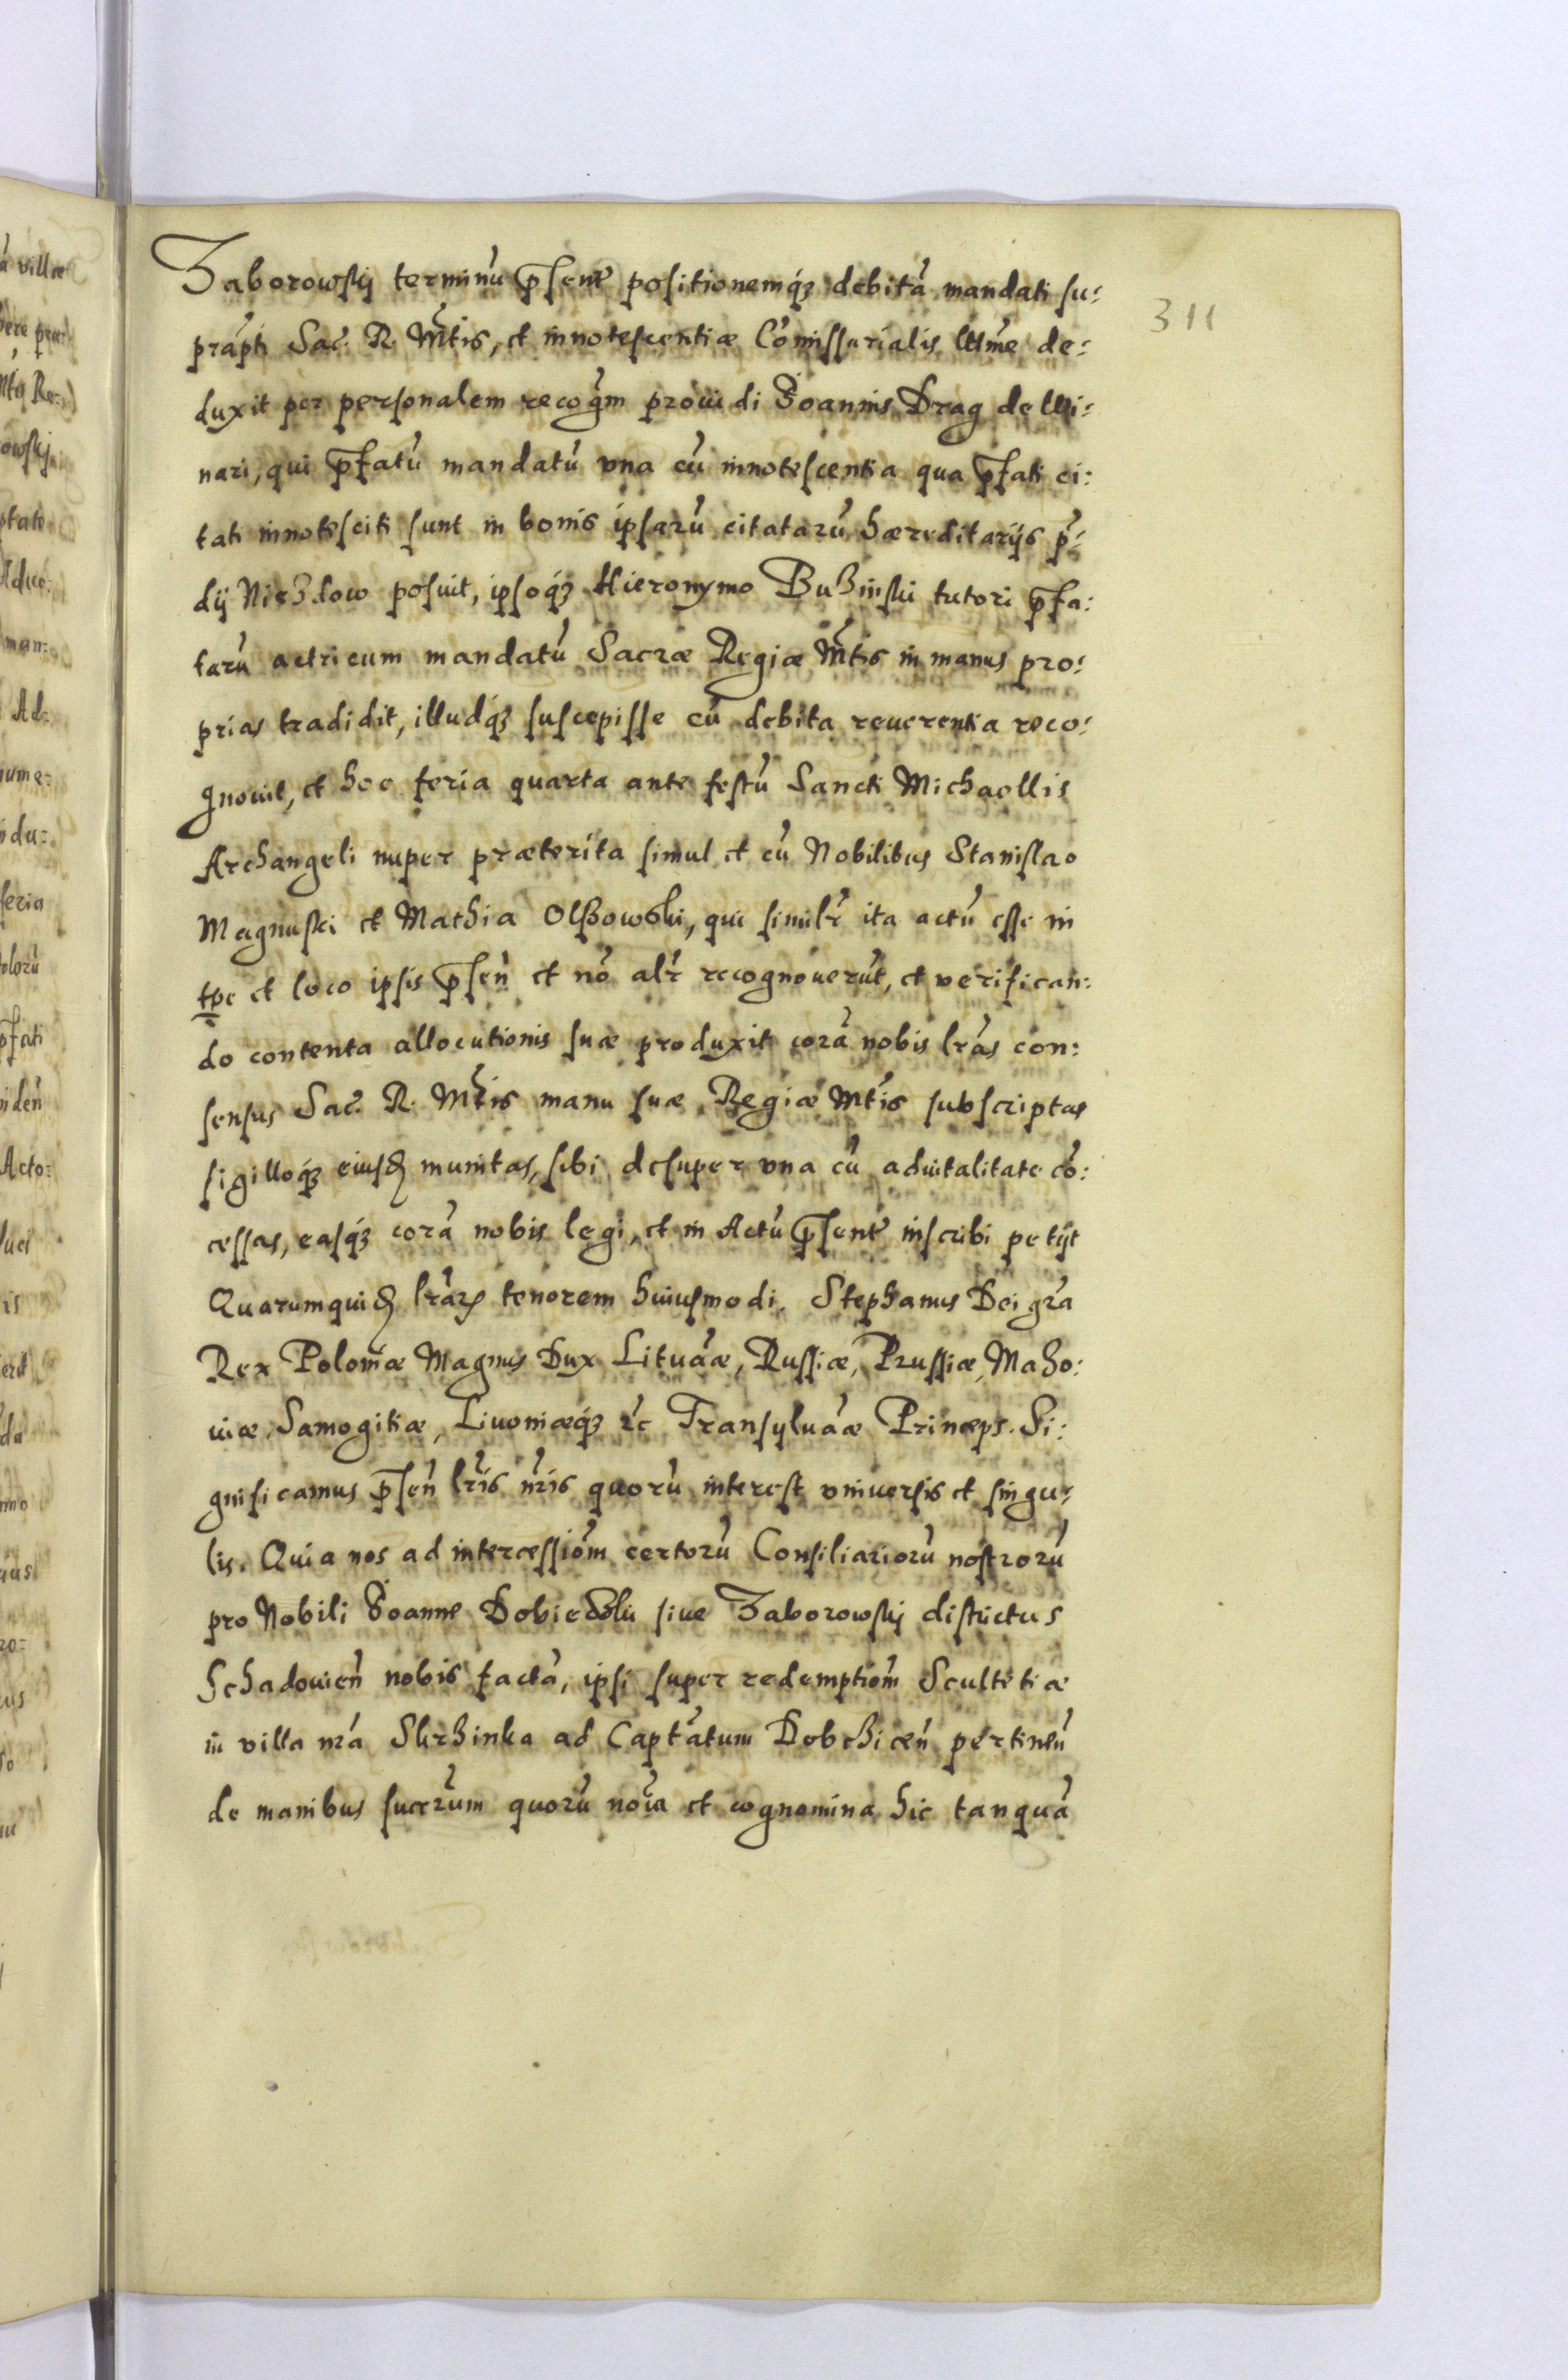 Zaborowskij terminũ p̃sent̃ positionemq́ꝫ debitã mandati su:
prãpti Sac̃. R. Mt̃is, et innotescentiæ Cõmissarialis ltt̃me de:
duxit per personalem recog̃m prouidi Joannis Drag de Wi:
nari, qui p̃fatũ mandatũ vna cũ innotescentia qua p̃fati ci:
tati innotesciti sunt in bonis ipsarũ citatarũ hæreditarijs p̃:
dij Niezdow posuit, ipsoq́ꝫ Hieronymo Buzinski tutori p̃fa:
tarũ actricum mandatũ Sacræ Regiæ Mt̃is in manus pro:
prias tradidit, illudq́ꝫ suscepisse cũ debita reuerentia reco:
gnouit, et hoc feria quarta ante festũ Sancti Michaellis
Archangeli nuper præterita simul et cũ Nobilibus Stanislao
Magnuski et Mathia Olszowski, qui similr̃ ita actũ esse in
tp̃e et loco ipsis p̃señ et nõ alr̃ recognouerũt, et verifican:
do contenta allocutionis suæ produxit corã nobis lr̃as con:
sensus Sac̃. R. Mt̃is manu suæ Regiæ Mt̃is subscriptas
sigilloq́ꝫ eiusd̃ munitas, sibi desuper vna cũ aduitalitate cõ:
cessas, easq́ꝫ corã nobis legi, et in Actũ p̃sent̃ inscribi petijt
Quarumquid̃ lr̃aꝝ tenorem huiusmodi. Stephanus Dei gr̃a
Rex Poloniæ Magnus Dux Lituãæ, Russiæ, Prussiæ, Mazo:
uiæ, Samogitiæ, Liuoniæq́ꝫ ꝛc Transyluãæ Princeps. Si:
gnificamus p̃señ lr̃is nr̃is quorũ interest vniuersis et singu:
lis. Quia nos ad intercessiom̃ certorũ Consiliariorũ nostrorũ
pro Nobili Joanne Dobieczki siue Zaborowskij districtus
Schadouieñ nobis factã, ipsi super redemptiom̃ Scultetiæ
in villa nr̃a Skrzinka ad Capt̃atum Dobchiceñ pertineñ
de manibus sucer̃um quorũ noĩa et cognomina hic tanquã
311